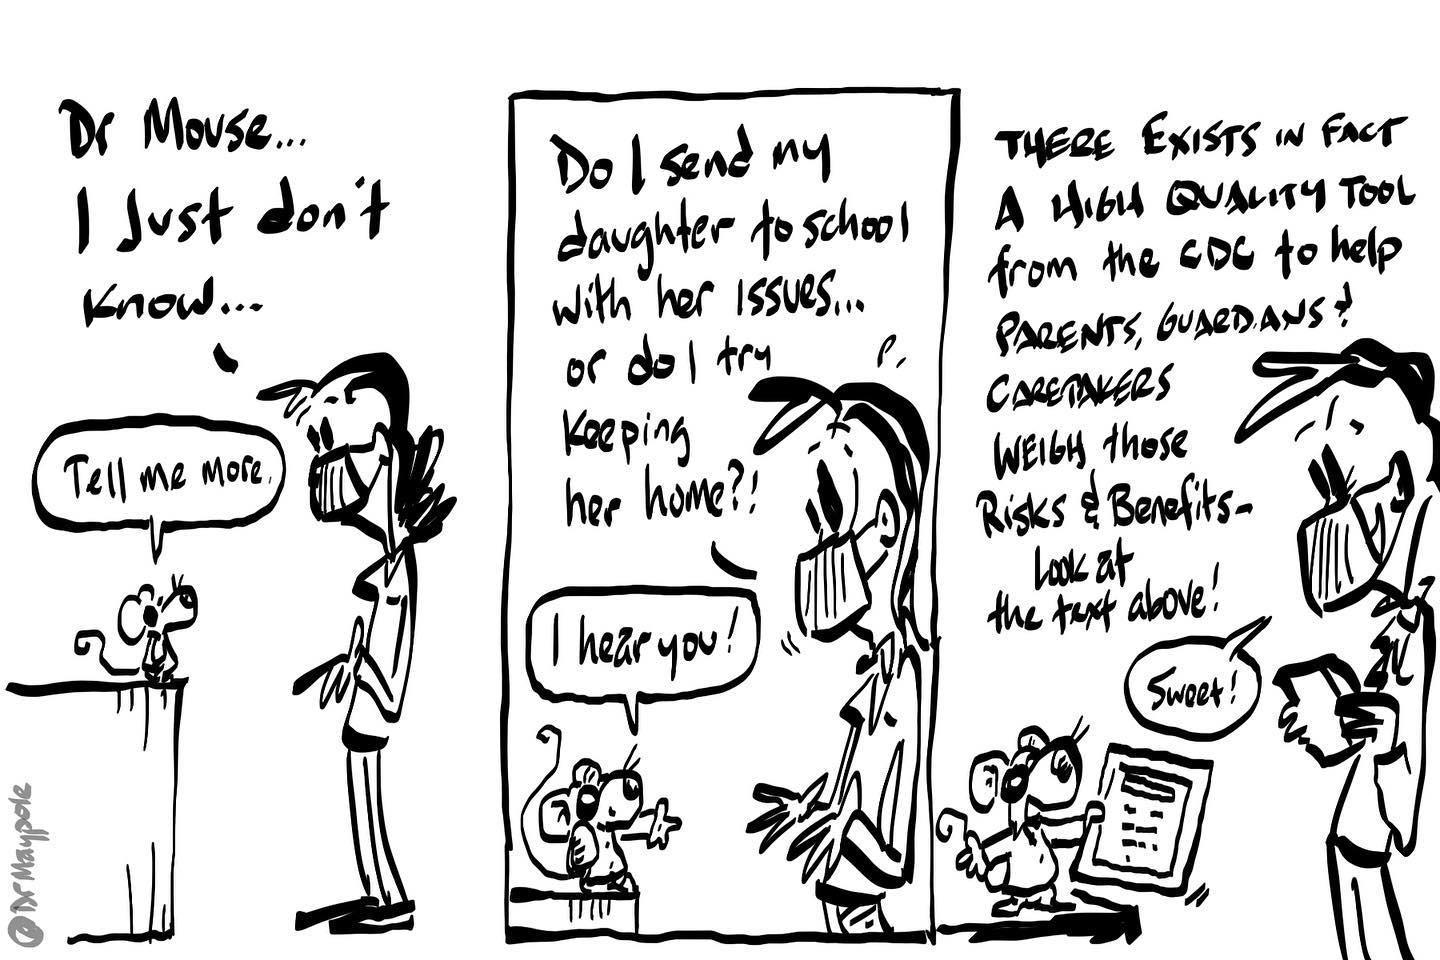 Dr Mouse...
I Just don't
know...
Tell me more.
Do I send my
daughter to school
with her issues...
or do I try
keeping
her home?!
I hear you!
THERE EXISTS IN FACT
A HIGH QUALITY TOOL
from the CDC to help
PARENTS, GUARDIANS &
CARETAKERS
WEIGH those
Risks & Benefits-
Look at
the text above!
Sweet!
@DrMaypole